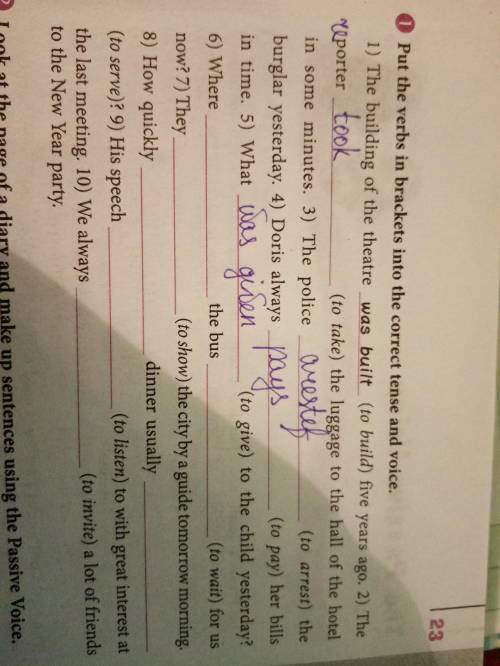 23
1 Put the verbs in brackets into the correct tense and voice.
1) The building of the theatre was built (to build) five years ago. 2) The
reporter took (to take) the luggage to the hall of the hotel
in some minutes. 3) The police arestef (to arrest) the
burglar yesterday. 4) Doris always pays (to pay) her bills
in time. 5) What was given (to give) to the child yesterday?
6) Where ______ the bus ______ (to wait) for us
now? 7) They ______ (to show) the city by a guide tomorrow morning.
8) How quickly ______ dinner usually ______
(to serve)? 9) His speech ______ (to listen) to with great interest at
the last meeting. 10) We always ______ (to invite) a lot of friends
to the New Year party.
Look at the page of a diary and make up sentences using the Passive Voice.